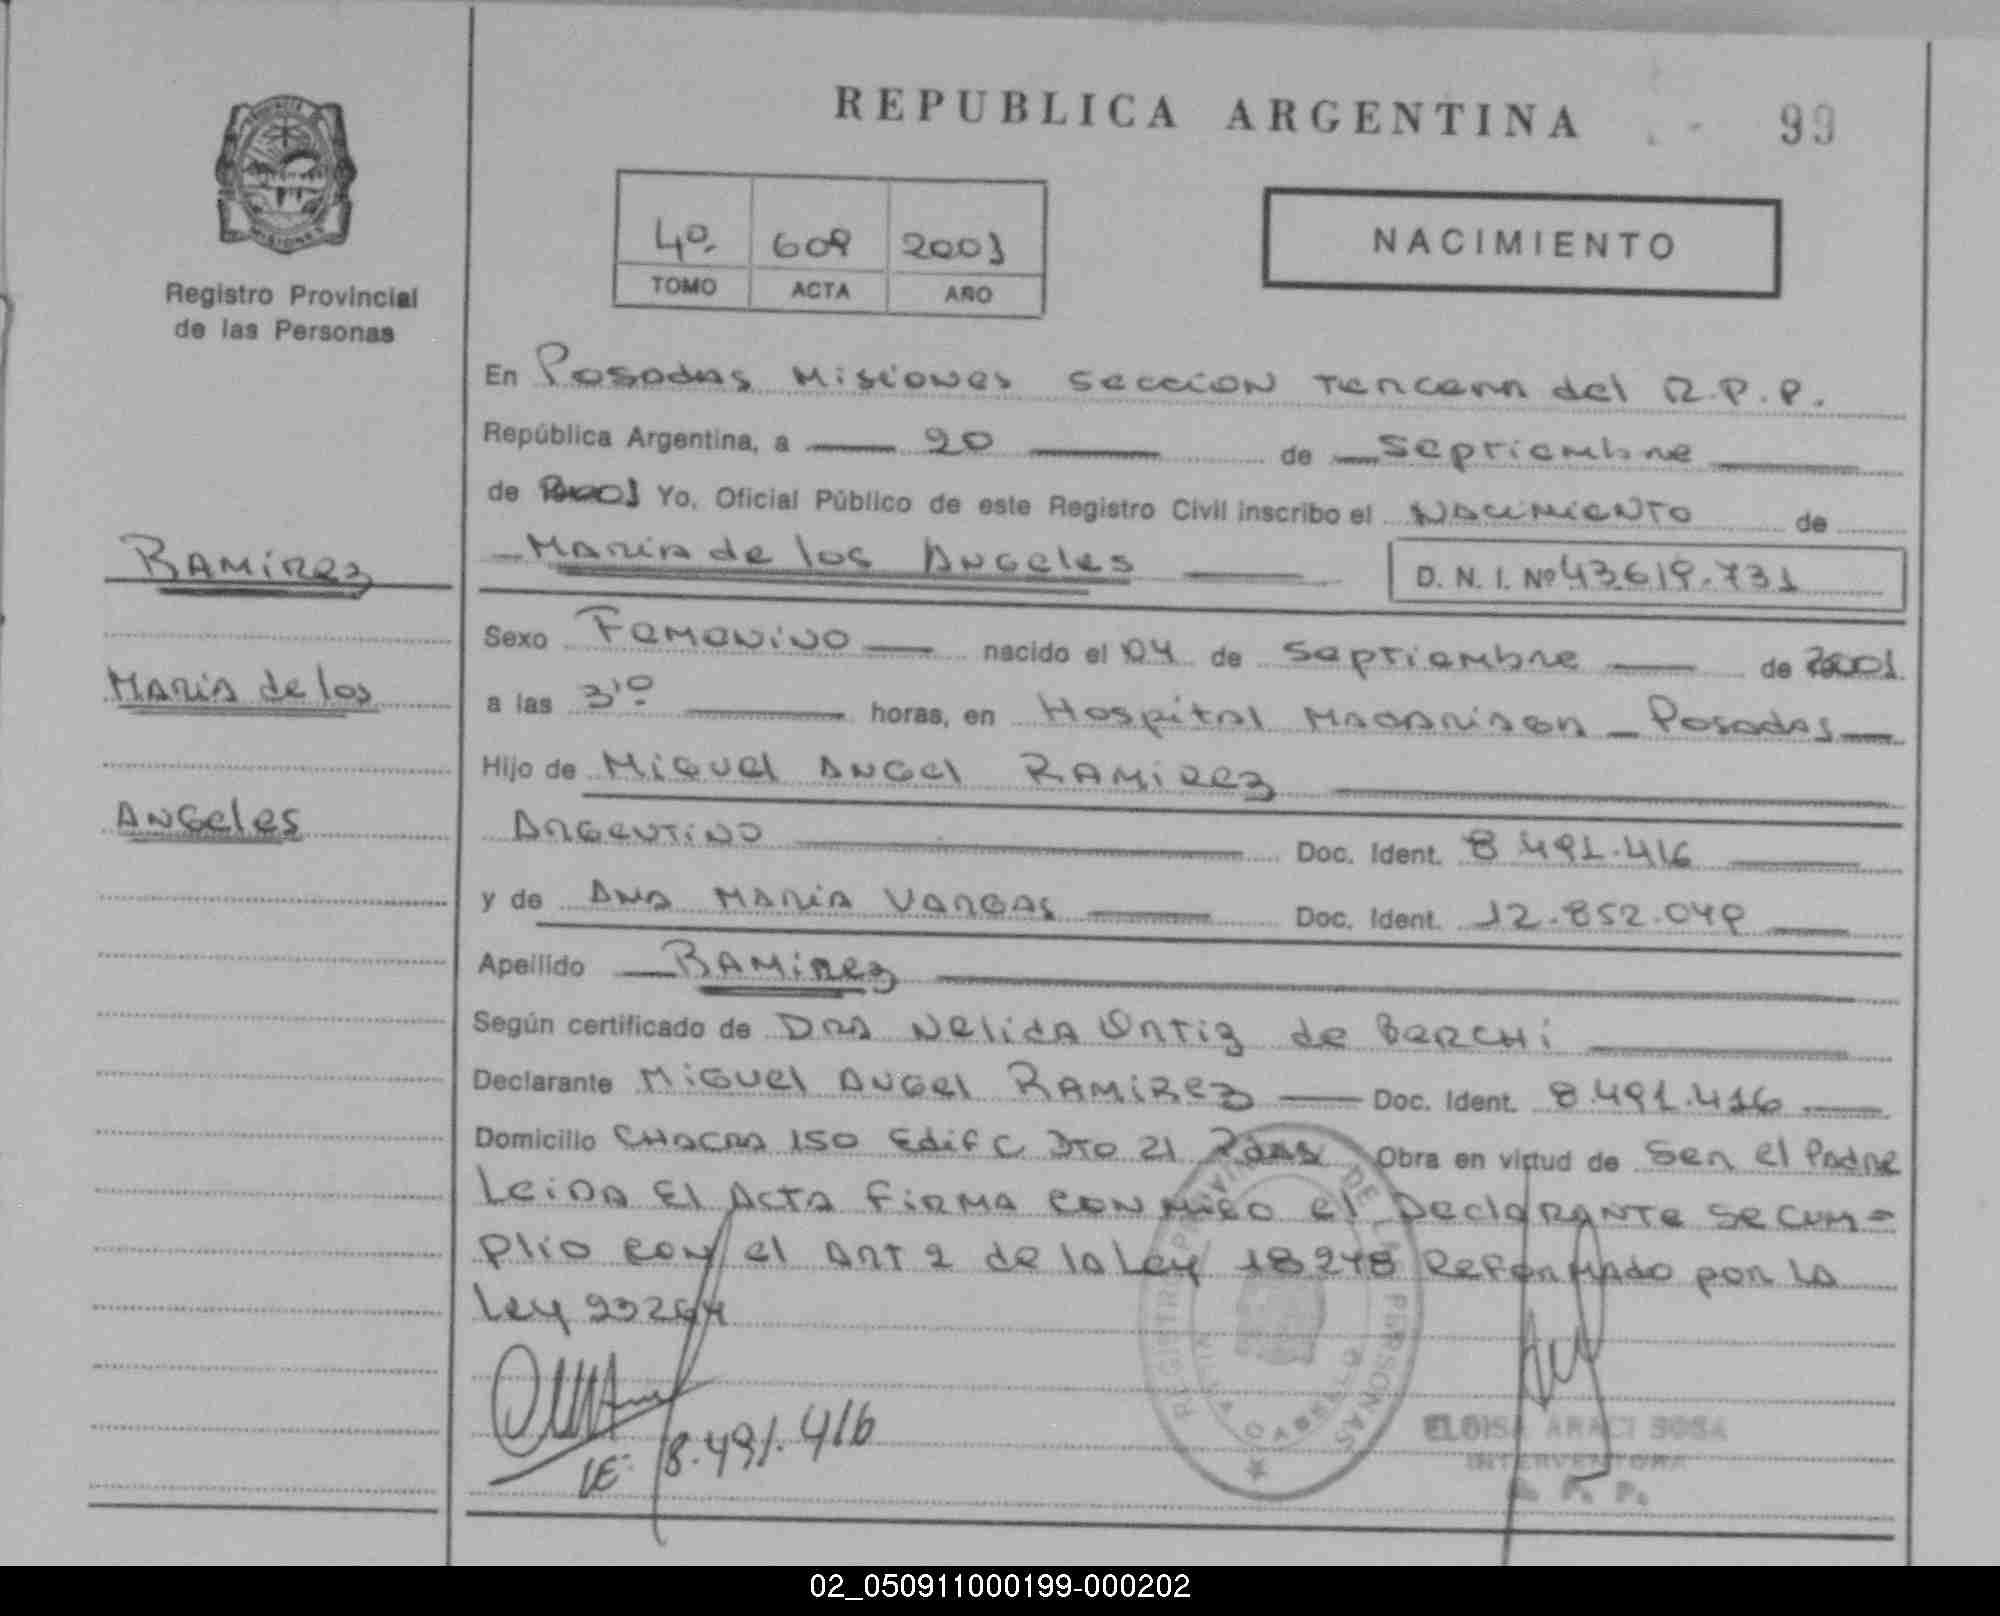 REPUBLICA ARGENTINA
99
Registro Provincial
de las Personas
4º 609 2001
TOMO ACTA AÑO
NACIMIENTO
En Posadas Misiones seccion Tercera del R.P.P.
República Argentina, a 20 de septiembre
de 2001 Yo, Oficial Público de este Registro Civil inscribo el Nacimiento de
Maria de los Angeles
D. N. I. Nº 43.619.731
Ramirez
Maria de los
Angeles
Sexo Femenino nacido el 04 de septiembre de 2001
a las 3'º horas, en Hospital Madariaga - Posadas
Hijo de Miguel Angel Ramirez
Argentino Doc. Ident. 8.491.416
y de Ana Maria Vargas Doc. Ident. 12.852.049
Apellido Ramirez
Según certificado de Dra Nelida Ortiz de Berchi
Declarante Miguel Angel Ramirez Doc. Ident. 8.491.416
Domicilio Chacra 150 Edif C Dto 21 Pdas Obra en virtud de Ser el Padre
Leida El Acta Firma con migo el Declarante se cum=
plio con el Art 2 de la Ley 18248 Reformado por la
Ley 23264
LE: 8.491.416
REGISTRO PROVINCIAL DE LAS PERSONAS
POSADAS
ELOISA ARACI SOSA
INTERVENTORA
R. P. P.
02_050911000199-000202